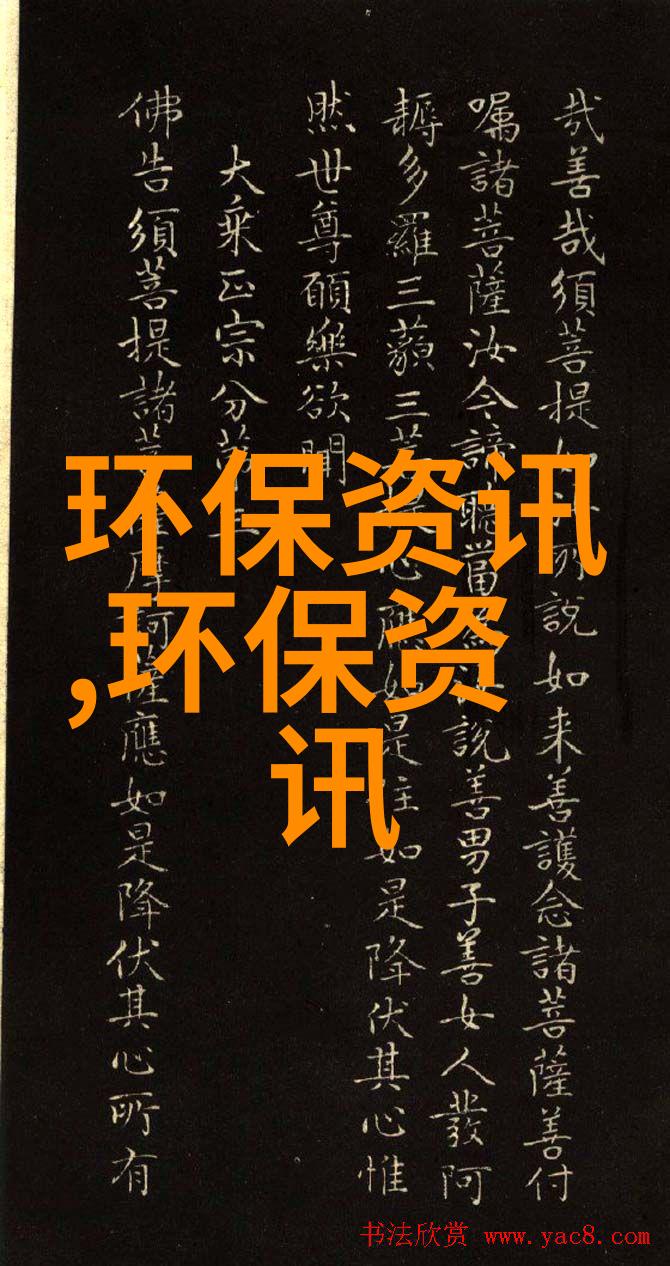 哉善哉須菩提如汝所說如来善護念諸菩薩善付
囑諸菩薩汝今諦聽當為汝說善男子善女人發阿
耨多羅三藐三菩提心應如是住如是降伏其心惟
然世尊願樂欲聞
大乘正宗分第三
佛告須菩提諸菩薩摩訶薩應如是降伏其心所有
环保资讯
,环保资
讯
书法欣赏 www.yac8.com